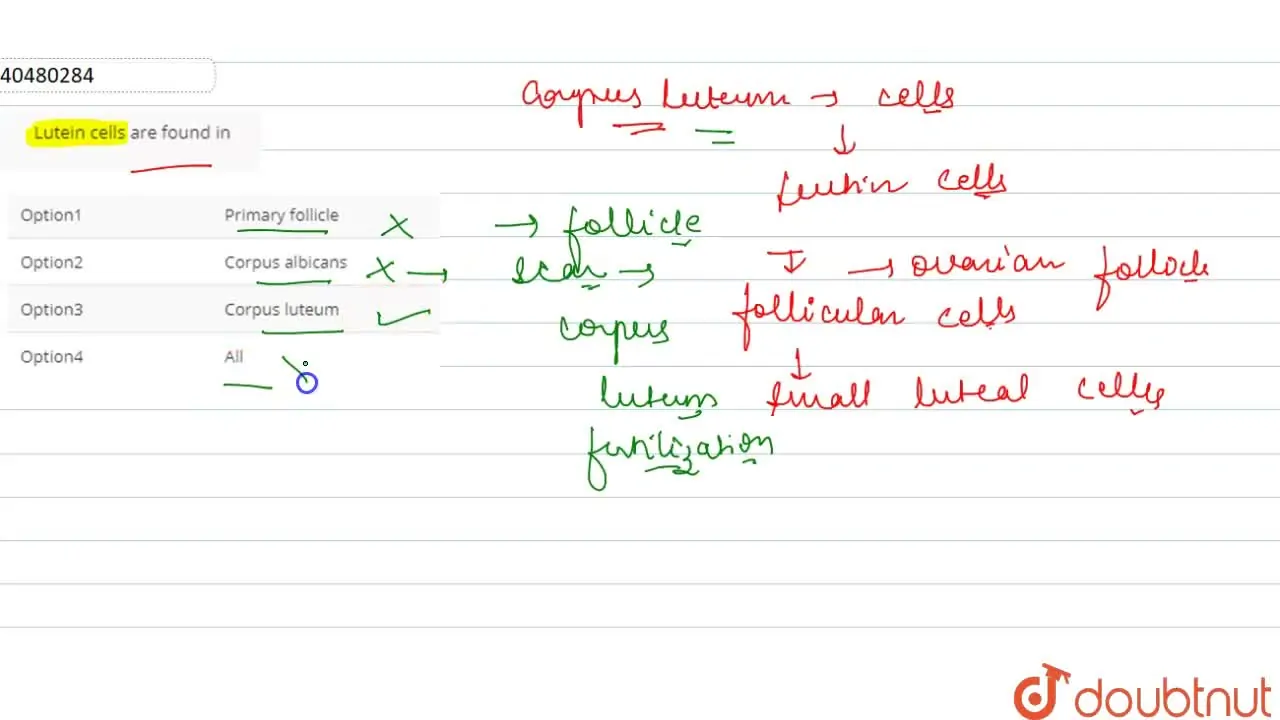 40480284
Lutein cells are found in
Option1 Primary follicle
Option2 Corpus albicans
Option3 Corpus luteum
Option4 All
Corpus luteum → cells
↓
lutein cells
↓ → ovarian follicle
follicular cells
↓
small luteal cells
→ follicle
X → scar →
corpus
luteum
fertilization
doubtnut